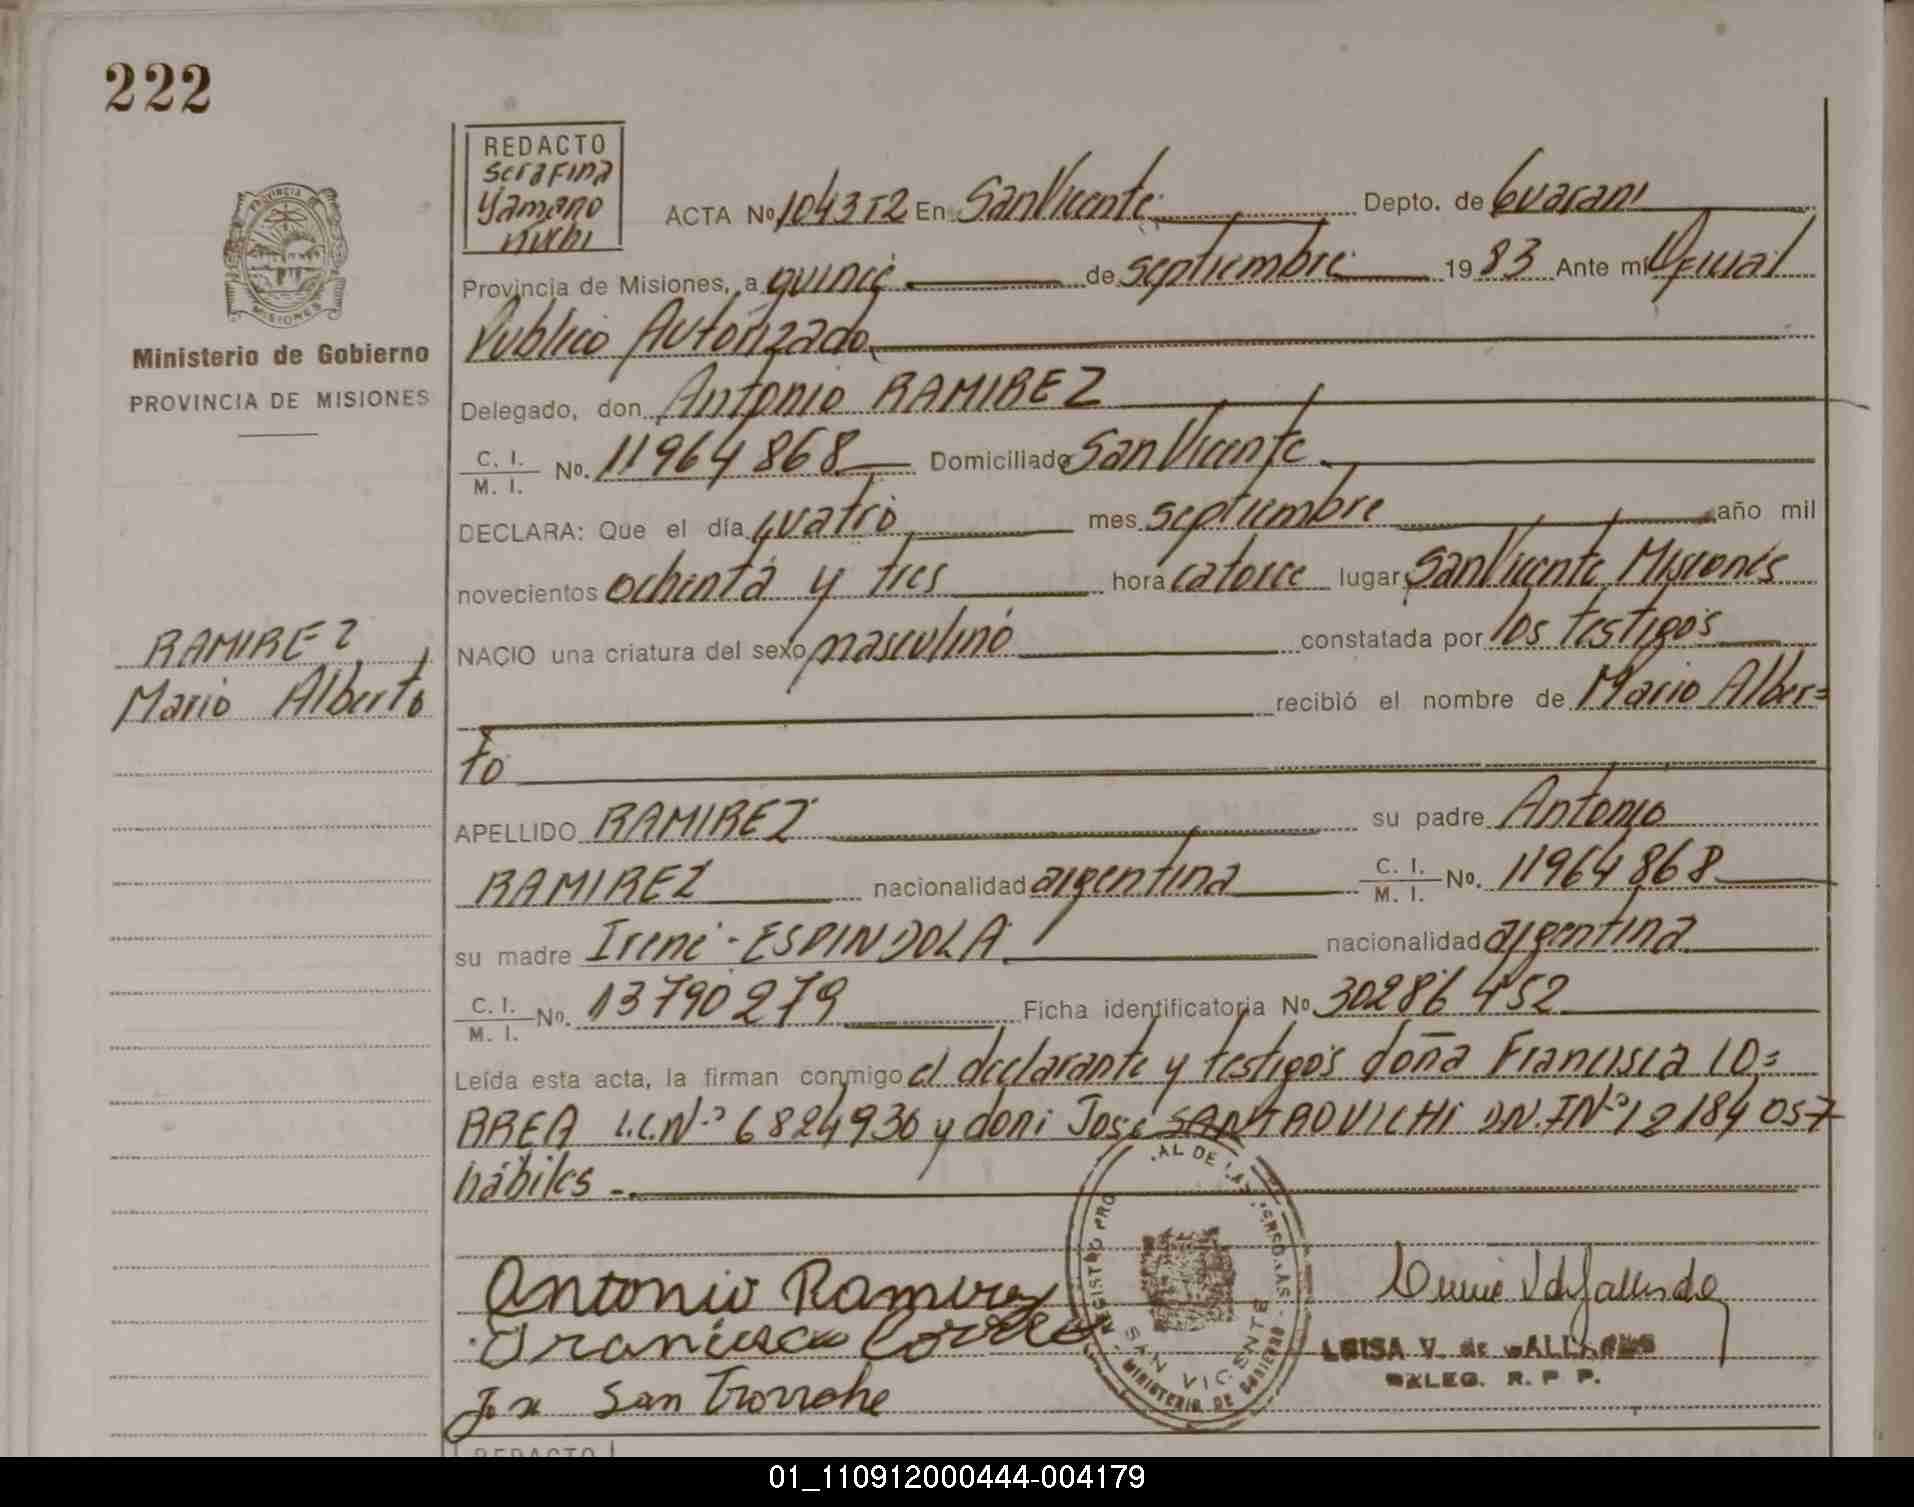 222
REDACTO
Serafina
Yamano
PROVINCIA
MISIONES
Ministerio de Gobierno
PROVINCIA DE MISIONES
RAMIREZ
Mario Alberto
ACTA No. 1043T2 En San Vicente Depto. de Guarani
Provincia de Misiones, a quince de septiembre 1983 Ante mi Oficial
Publico Autorizado
Delegado, don Antonio RAMIREZ
C. I. / M. I. No. 11964868 Domiciliado San Vicente
DECLARA: Que el día cuatro mes septiembre año mil
novecientos ochenta y tres hora catorce lugar San Vicente Misiones
NACIO una criatura del sexo masculino constatada por los testigos
recibió el nombre de Mario Alber=
to
APELLIDO RAMIREZ su padre Antonio
RAMIREZ nacionalidad argentina C. I. / M. I. No. 11964868
su madre Irene - ESPINDOLA nacionalidad argentina
C. I. / M. I. No. 13790279 Ficha identificatoria No. 30286452
Leída esta acta, la firman conmigo el declarante y testigos doña Francisca CO=
RREA L.C.Nº 6824936 y don: José SANTROVICHI DN.I Nº 12184057
hábiles -.
Antonio Ramirez
Francisca Correa
SAN VICENTE
MINISTERIO DE GOBIERNO
LUISA V. de
DELEG. R. P. P.
REDACTO
01_110912000444-004179